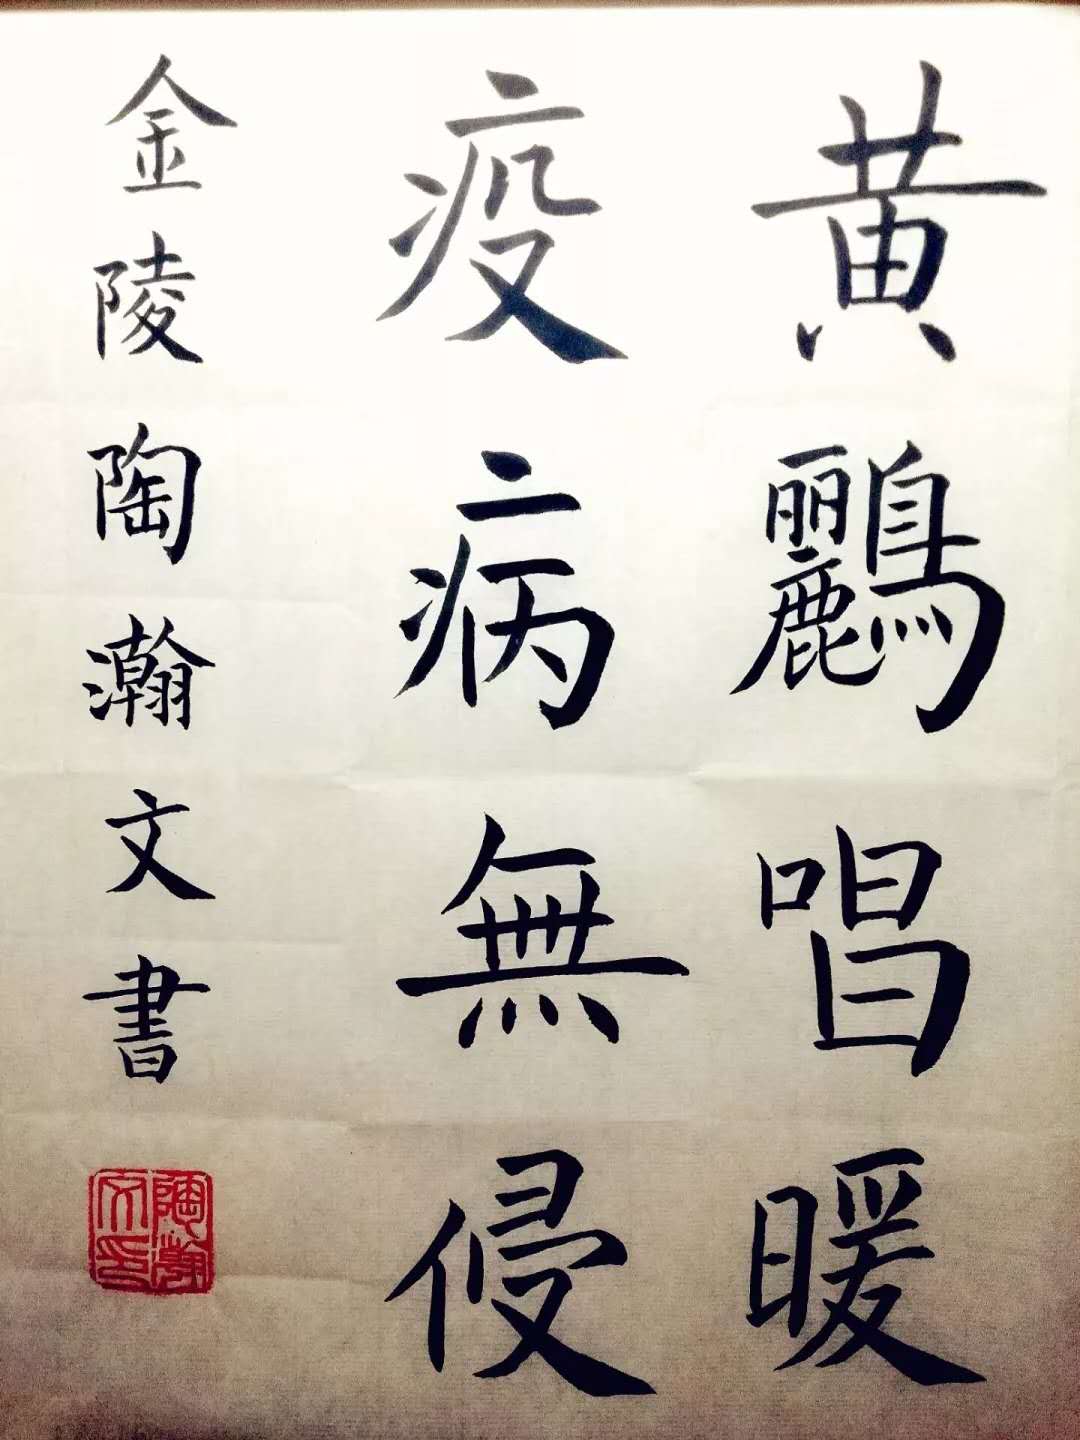 黄鸝唱暖
疫病無侵
金陵陶瀚文書
陶瀚文印